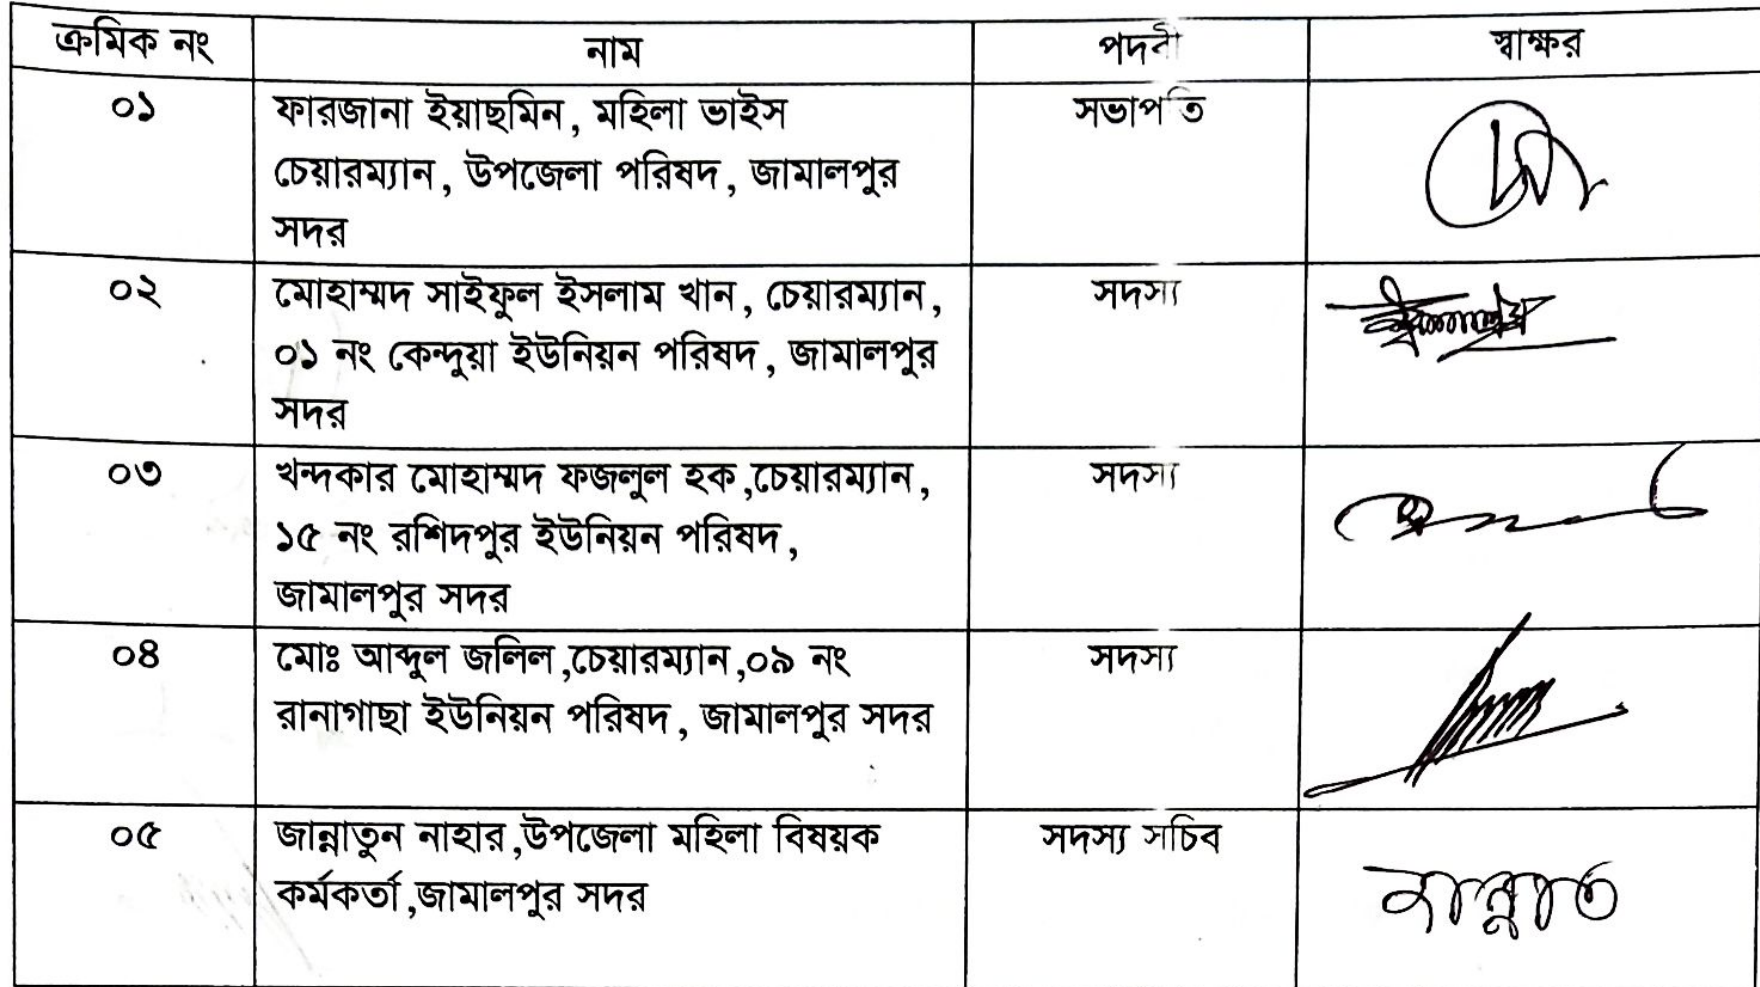 ক্রমিক নং নাম পদবী স্বাক্ষর
০১ ফারজানা ইয়াছমিন, মহিলা ভাইস সভাপতি
চেয়ারম্যান, উপজেলা পরিষদ, জামালপুর
সদর
০২ মোহাম্মদ সাইফুল ইসলাম খান, চেয়ারম্যান, সদস্য
০১ নং কেন্দুয়া ইউনিয়ন পরিষদ, জামালপুর
সদর
০৩ খন্দকার মোহাম্মদ ফজলুল হক,চেয়ারম্যান, সদস্য
১৫ নং রশিদপুর ইউনিয়ন পরিষদ,
জামালপুর সদর
০৪ মোঃ আব্দুল জলিল,চেয়ারম্যান,০৯ নং সদস্য
রানাগাছা ইউনিয়ন পরিষদ, জামালপুর সদর
০৫ জান্নাতুন নাহার,উপজেলা মহিলা বিষয়ক সদস্য সচিব
কর্মকর্তা,জামালপুর সদর জান্নাত